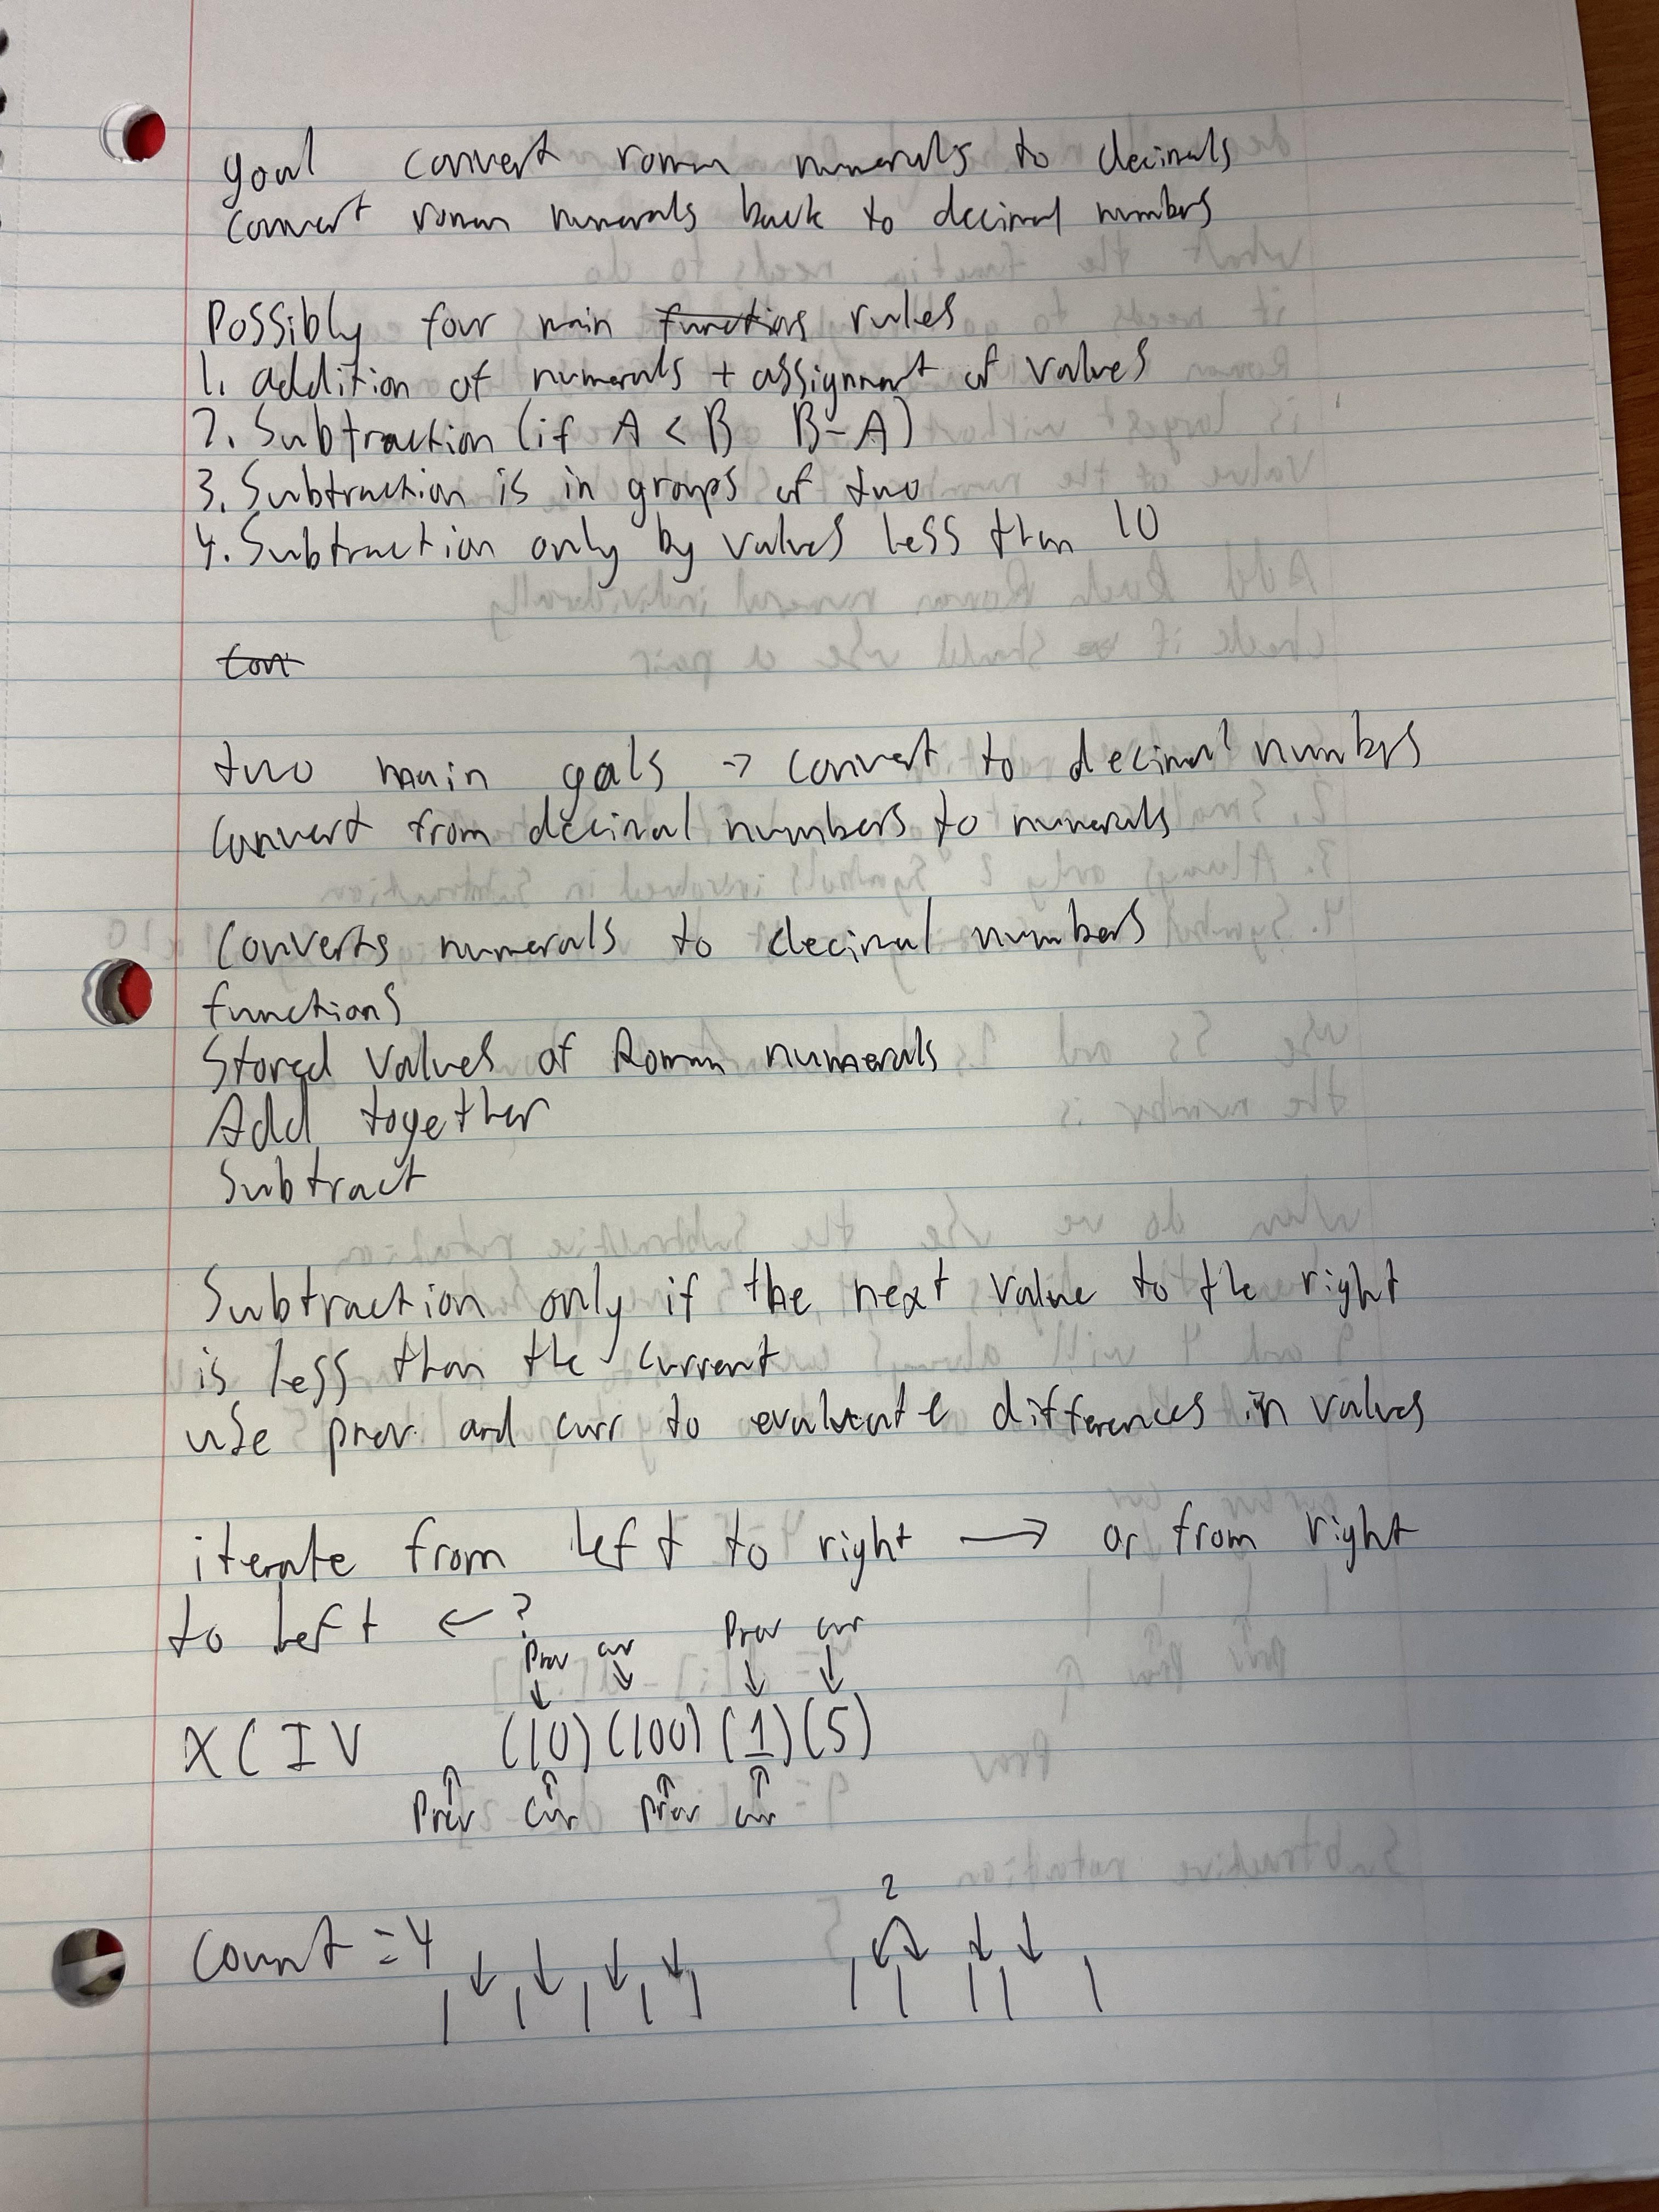 goal convert roman numerals to decimals
convert roman numerals back to decimal numbers
Possibly four main functions rules
1. addition of numerals + assignment of values
2. Subtraction (if A < B B-A)
3. Subtraction is in groups of two
4. Subtraction only by values less than 10
con
two main goals → convert to decimal numbers
convert from decimal numbers to numerals
Converts numerals to decimal numbers
functions
Stored values of Roman numerals
Add together
Subtract
Subtraction only if the next value to the right
is less than the current
use prev and curr to evaluate differences in values
iterate from left to right → or from right
to left ← ?
Prev cur Prev cur
XCIV (10) (100) (1) (5)
Prev cur prev cur
2
Count = 4